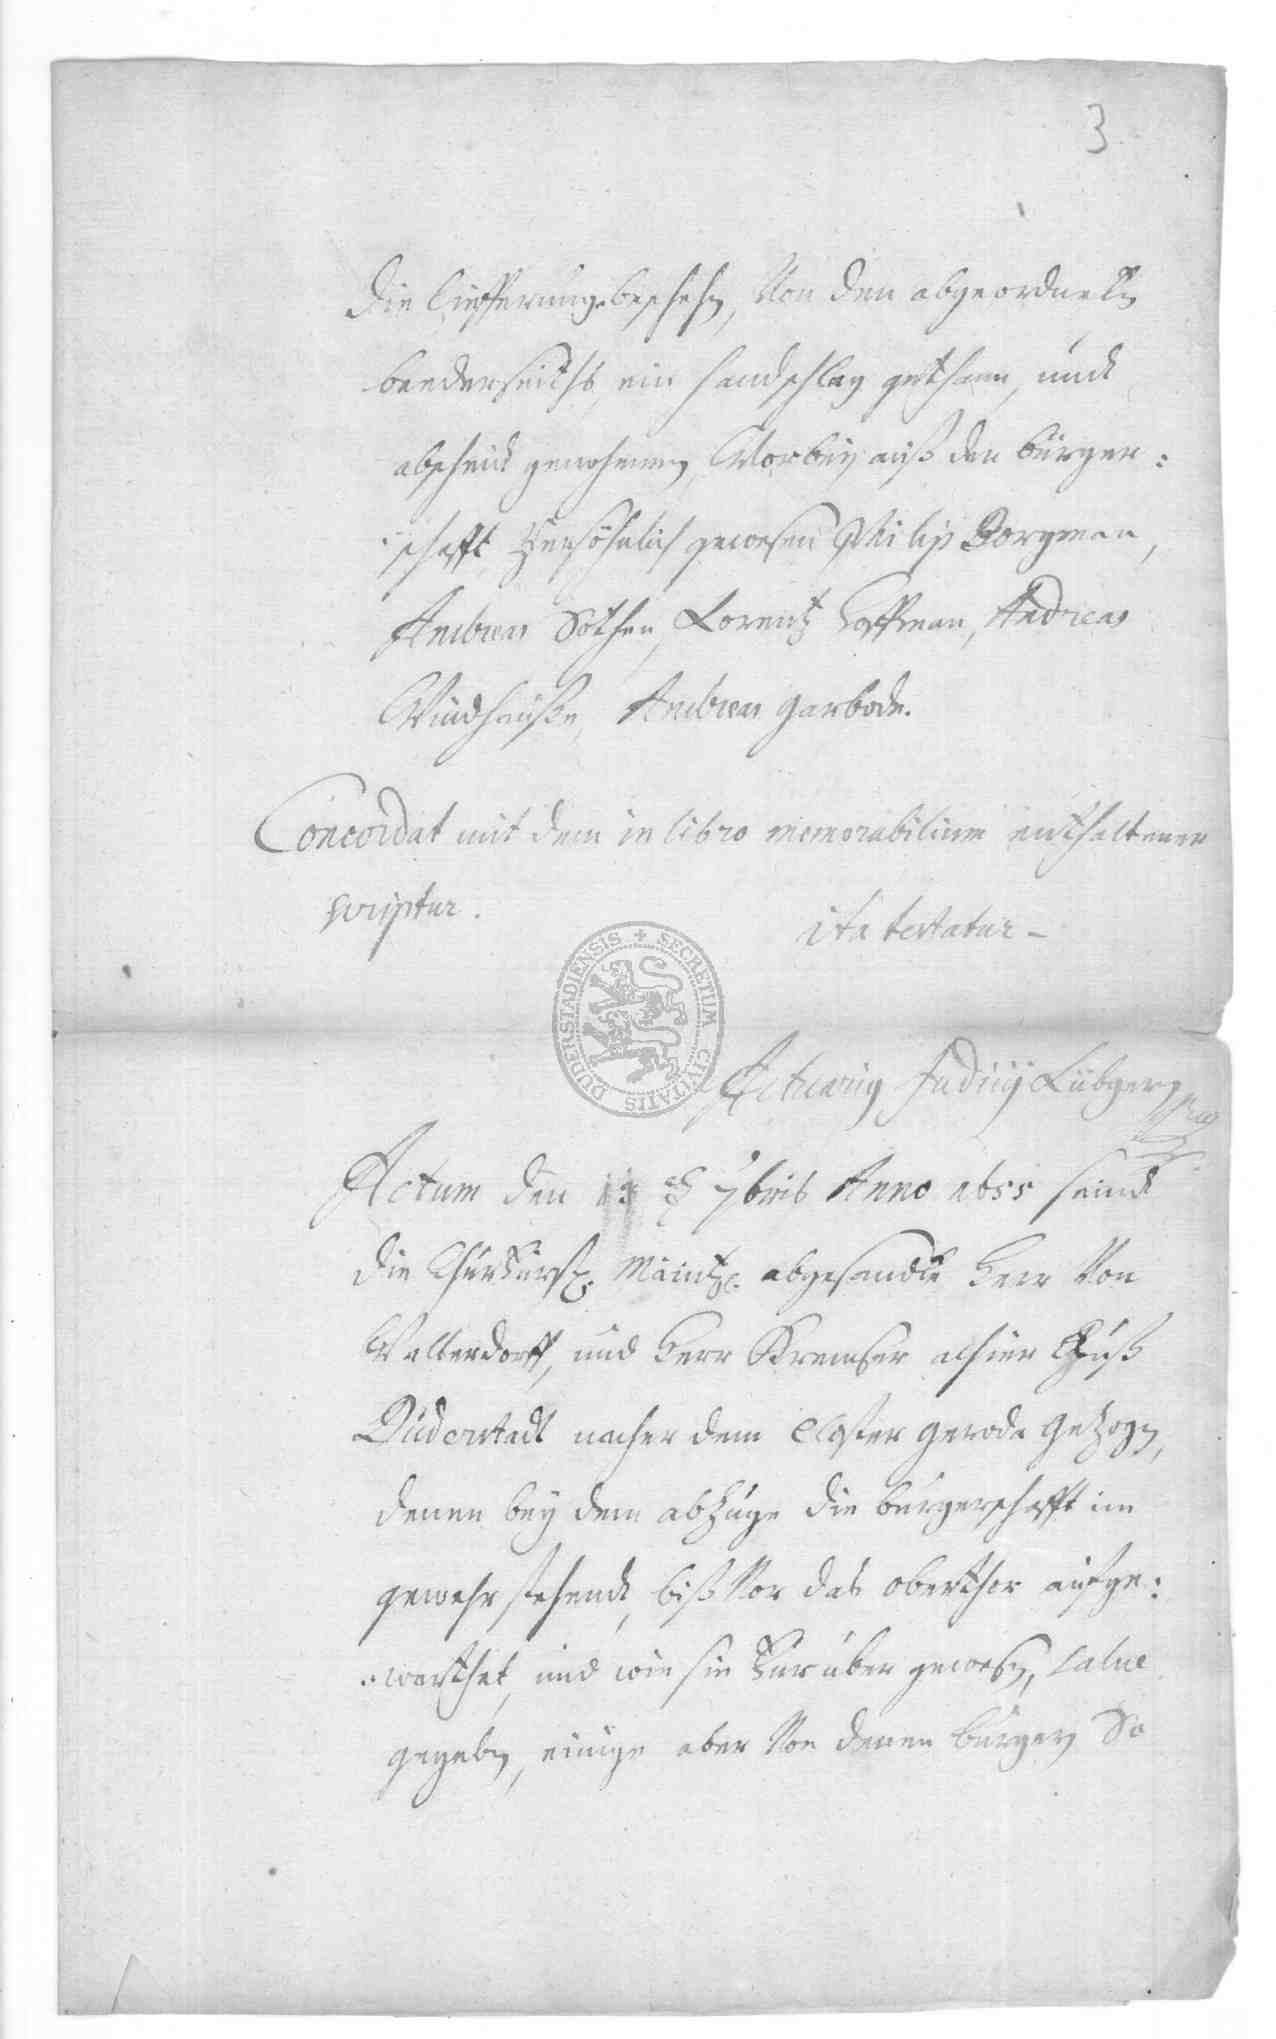 3
die lieferung beschehen, Von den abgeordneten
beederseiths ein handschlag gethann, undt
abscheid genohmen, Worbey auß der bürger:
schafft Persöhnlich gewesen Philip Borgman,
Andreas Sothen, Lorentz Hoffman, Andreas
Windhausen, Andreas Garbode.
Concordat mit dem in libro memorabilium enthaltenen
scriptur.
ita testatur
SECRETUM CIVITATIS DUDERSTADIENSIS
Actuarius Judicij Lübgers
Actum den 13 7bris Anno 1655 seind
die Churfürstl. Maintz. abgesandte Herr Von
Walterdorff, und Herr Kremser alhier Auß
Duderstadt nacher dem Closter Gerode gezogen,
denen bey dem abzuge die bürgerschafft im
gewehr stehendt, biß Vor das oberthor aufge:
warthet, und wie sie Vorüber gewesen, salue
gegeben, einige aber Von denen bürgern So